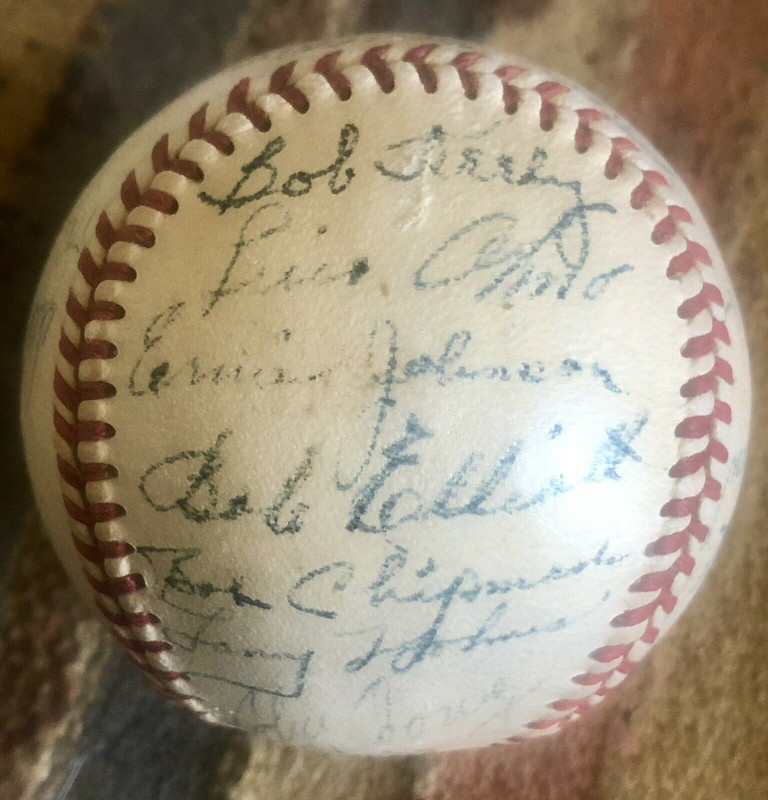 Bob Keely
Luis Olmo
Ernie Johnson
Bob Elliott
Bob Chipman
Tommy Holmes